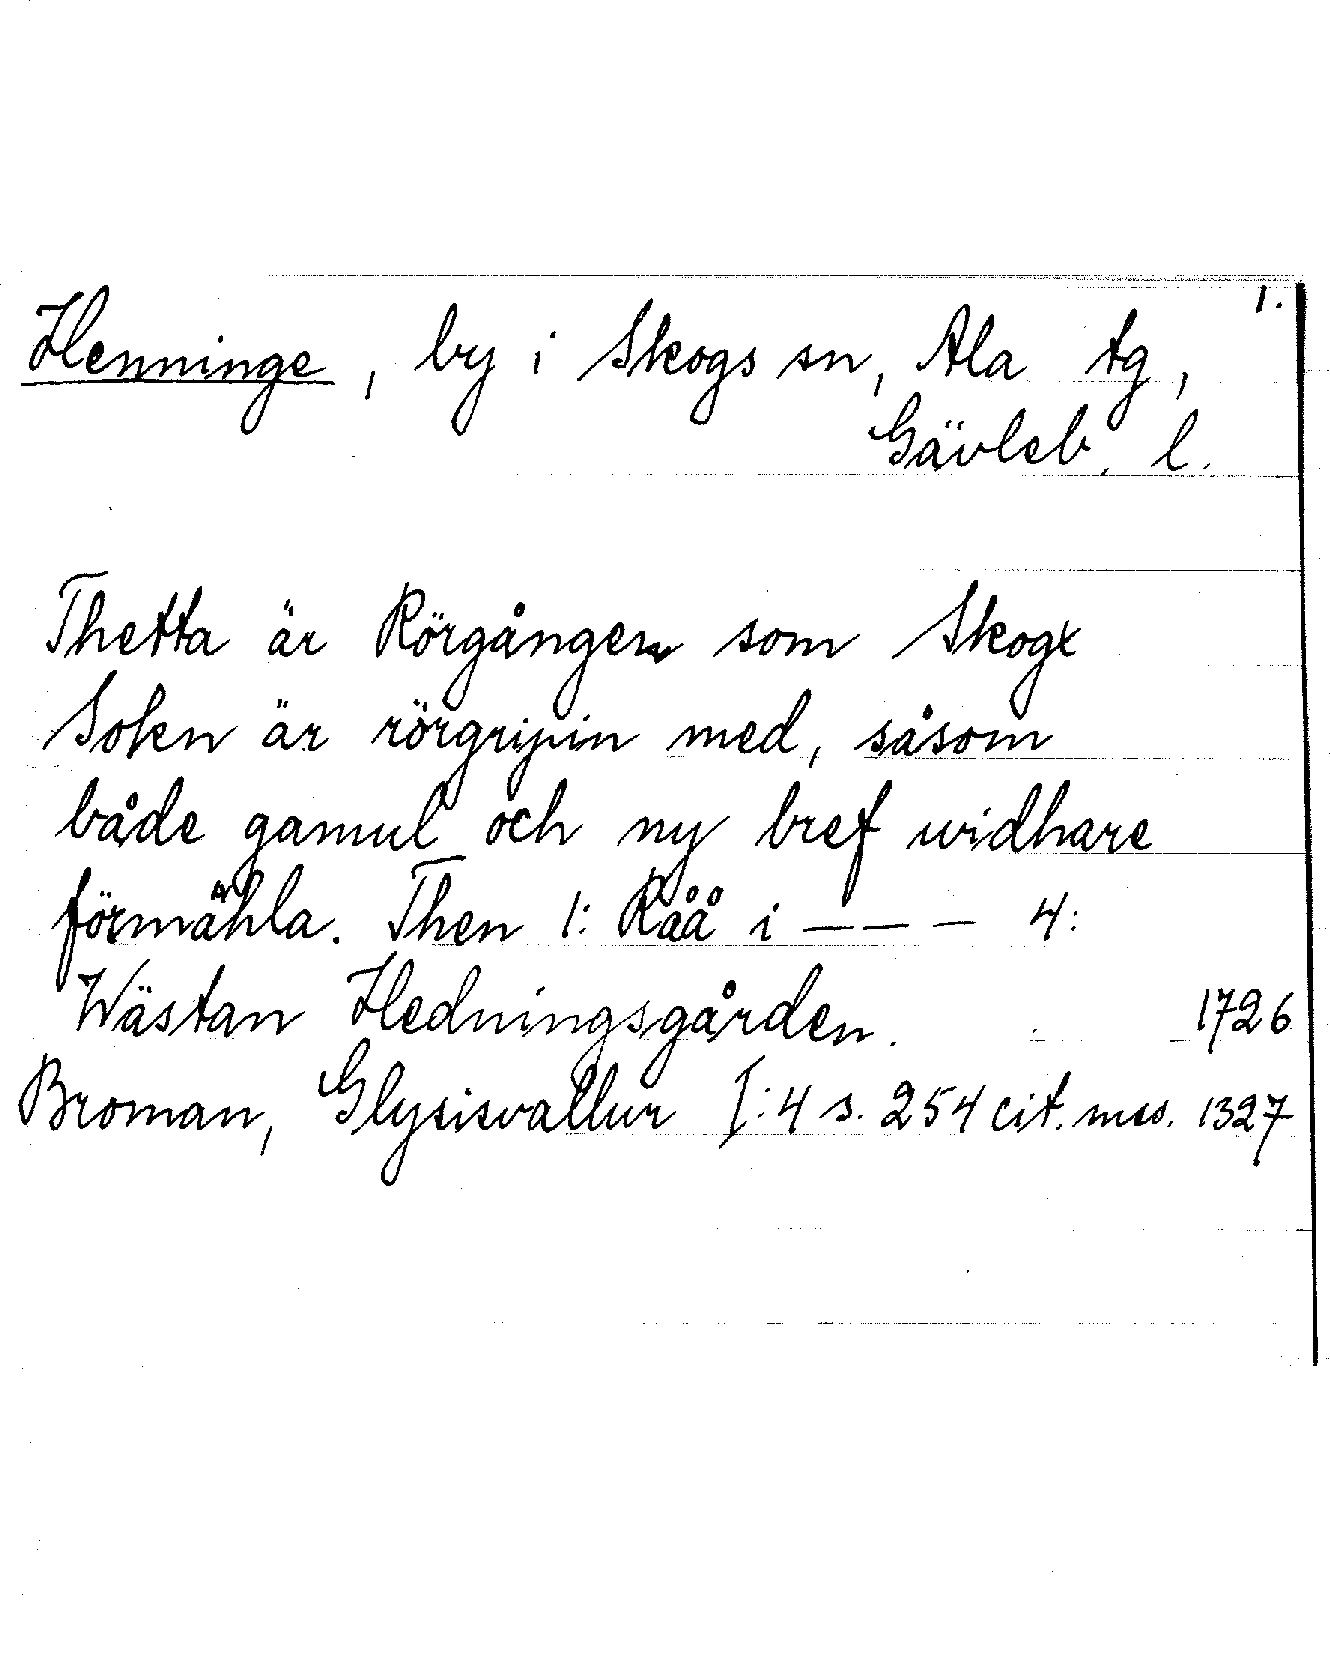 1.
Henninge, by i Skogs sn, Ala tg,
Gävleb. l.
Thetta är Rörgången som Skogx
Sokn är rörgripin med, såsom
både gamul och ny bref widhare
förmähla. Then 1: Råå i ——— 4:
Wästan Hedningsgården. 1726
Broman, Glysisvallur I:4 s. 254 cit. mss. 1327